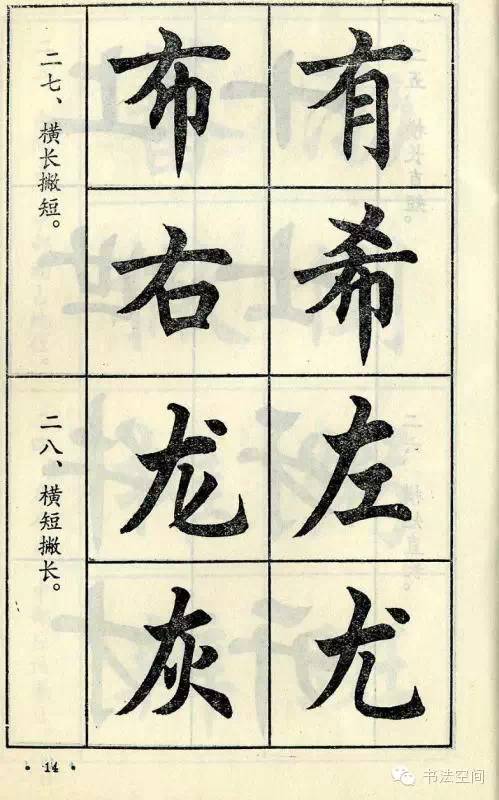 有
希
布
右
二七、横长撇短。
左
尤
龙
灰
二八、横短撇长。
• 14 •
书法空间